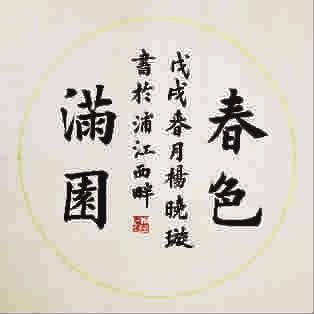 春色
戊戌春月楊曉璇
書於浦江西畔
滿園